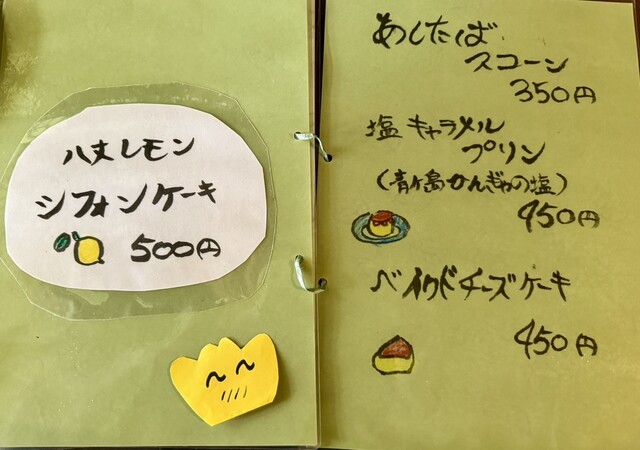 八丈レモン
シフォンケーキ
500円
あしたば
スコーン
350円
塩キャラメル
プリン
(青ヶ島かんぎゅの塩)
450円
ベイクドチーズケーキ
450円